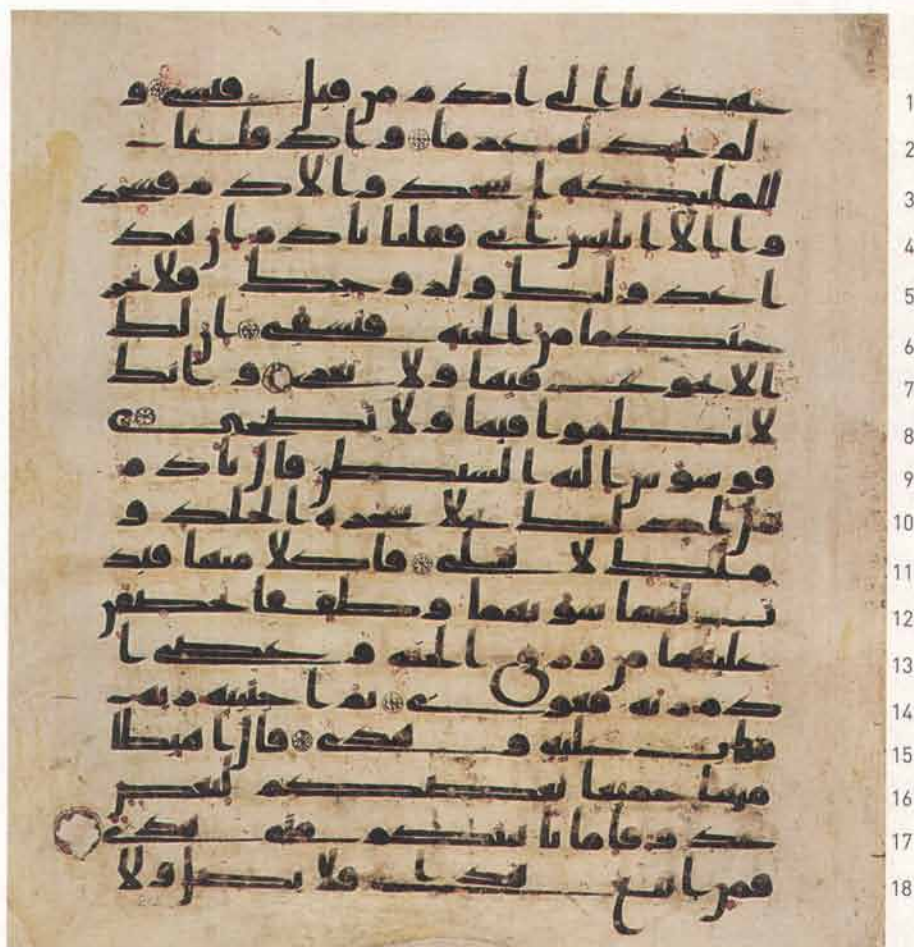 1 عهدنا الى ادم من قبل فنسى و
2 لم نجد له عزما واذ قلنا
3 للمليكه اسجدوا لادم فسجد
4 وا الا ابليس ابى فقلنا يادم ان هذ
5 ا عدو لك ولزوجك فلا يخر
6 جنكما من الجنه فتشقى ان لك
7 الا تجوع فيها ولا تعرى وانك
8 لا تظموا فيها ولا تضحى
9 فوسوس اليه الشيطن قال يادم
10 هل ادلك على شجره الخلد و
11 ملك لا يبلى فاكلا منها فبد
12 ت لهما سوتهما وطفقا يخصفن
13 عليهما من ورق الجنه وعصى ا
14 دم ربه فغوى ثم اجتبيه ربه
15 فتاب عليه وهدى قال اهبطا
16 منها جميعا بعضكم لبعض
17 عدو فاما ياتينكم منى هدى
18 فمن اتبع هداى فلا يضل ولا